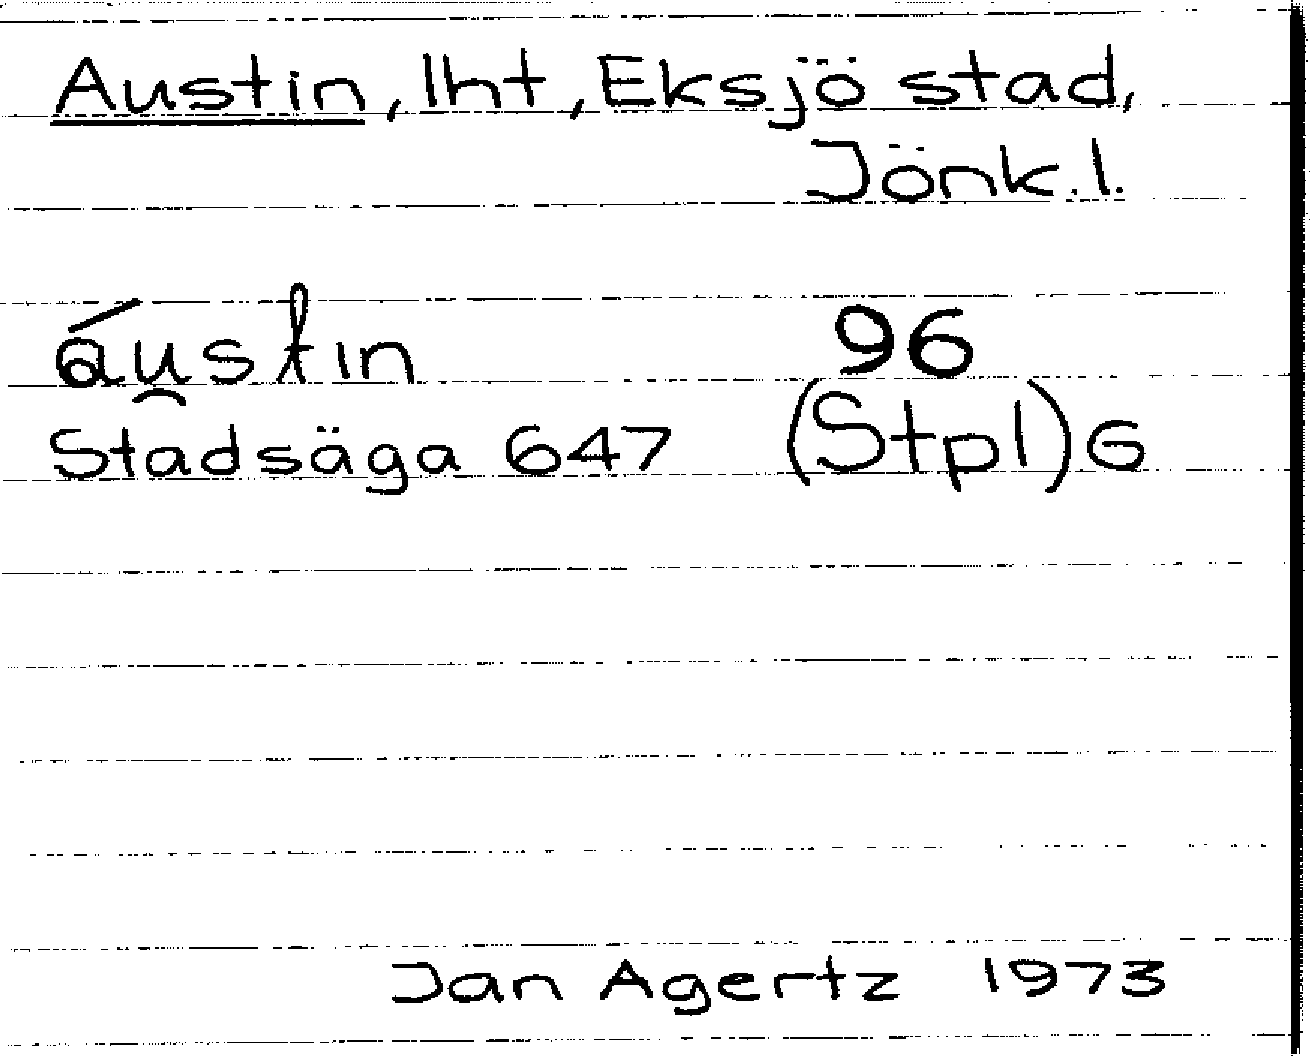 Austin, lht, Eksjö stad,
Jönk.l.
áu̯stin 96
Stadsäga 647 (Stpl) G
Jan Agertz 1973